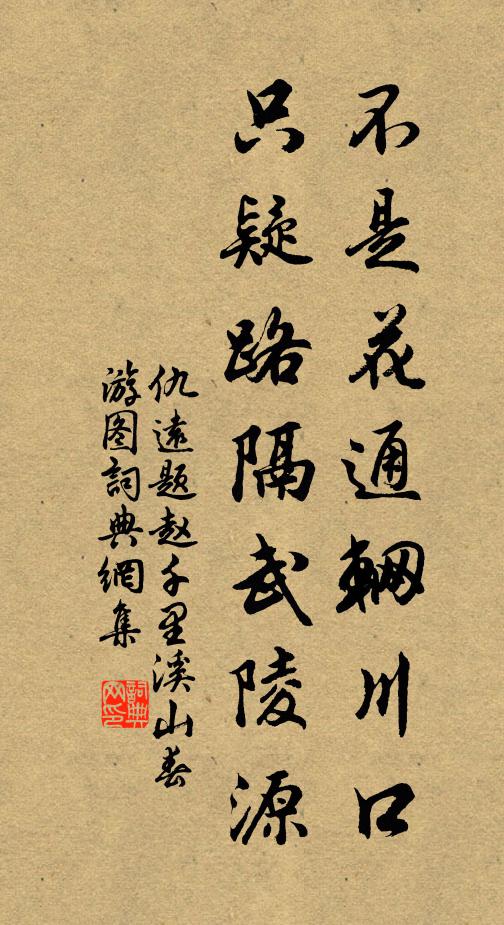 不是花通輞川口
只疑路隔武陵源
仇遠題赵千里溪山春
游图詞典網集
詞典
网印